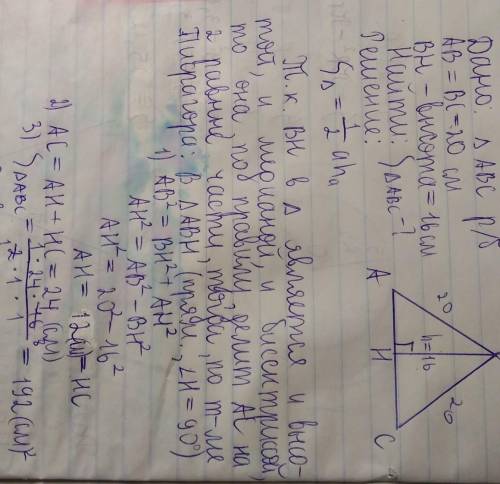 Дано: △ ABC р/б
AB = BC = 20 см
BH - высота = 16 см
Найти: S△ABC - ?
Решение:
20
20
h=16
A
H
C
S△ = 1/2 ah_a
Т.к BH в △ является и высо-
той, и медианой, и биссектрисой,
то она по правилу делит AC на
2 равные части, тогда, по т-ме
Пифагора: в △ABH (прям., ∠H = 90°)
1) AB² = BH² + AH²
AH² = AB² - BH²
AH² = 20² - 16²
AH = 12(см) = HC
2) AC = AH + HC = 24 (см)
3) S△ABC = 1 · 24 · 16 / 2 · 1 · 1 = 192 (см)²